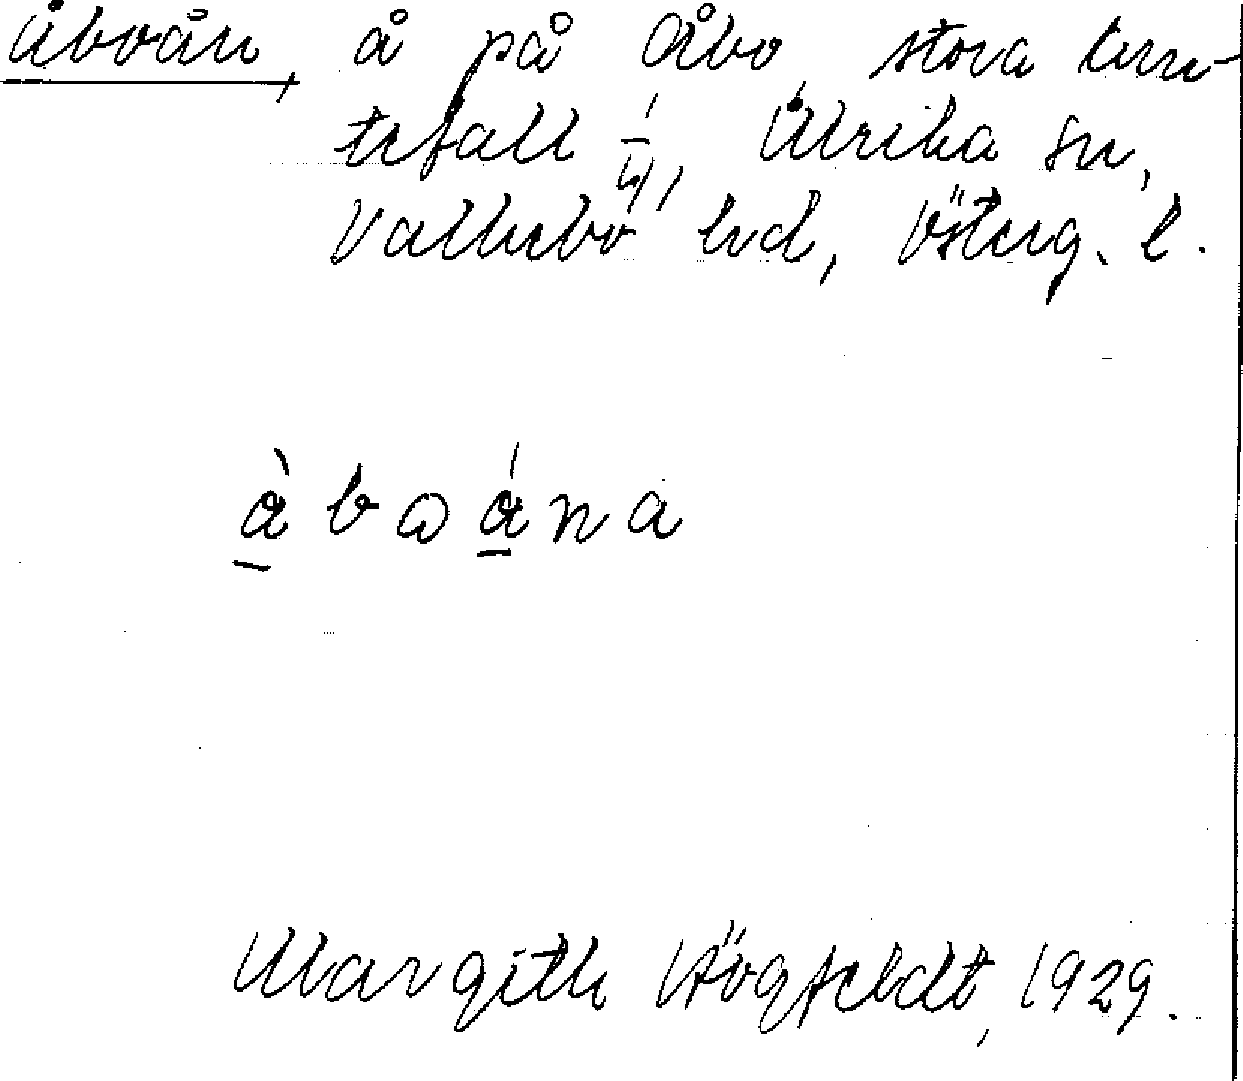 Åboån, å på Åbo, stora kron-
tefall 1/4, Ulrika sn,
Valkebo hd, Österg. l.
àboána
Margith Högfeldt, 1929.